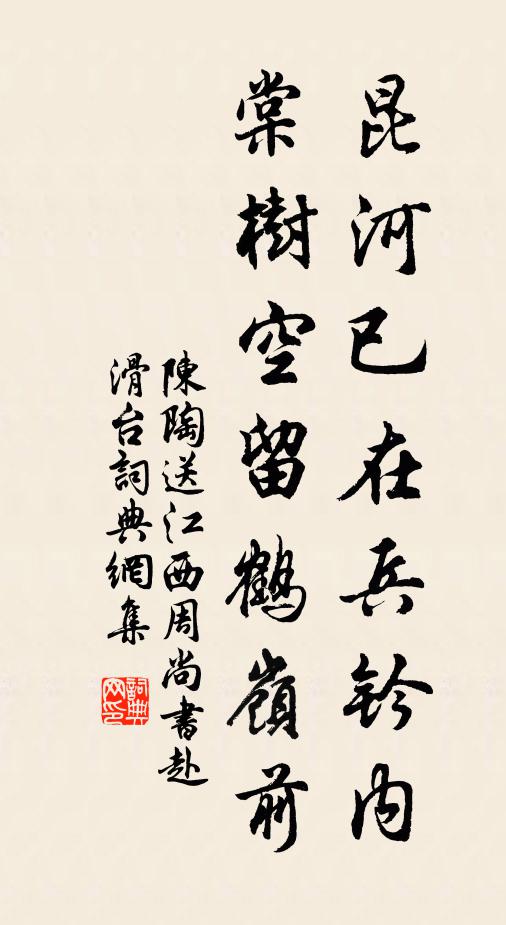 昆河已在兵鈐內
棠樹空留鶴嶺前
陳陶送江西周尚書赴
滑台詞典網集
詞典
网印